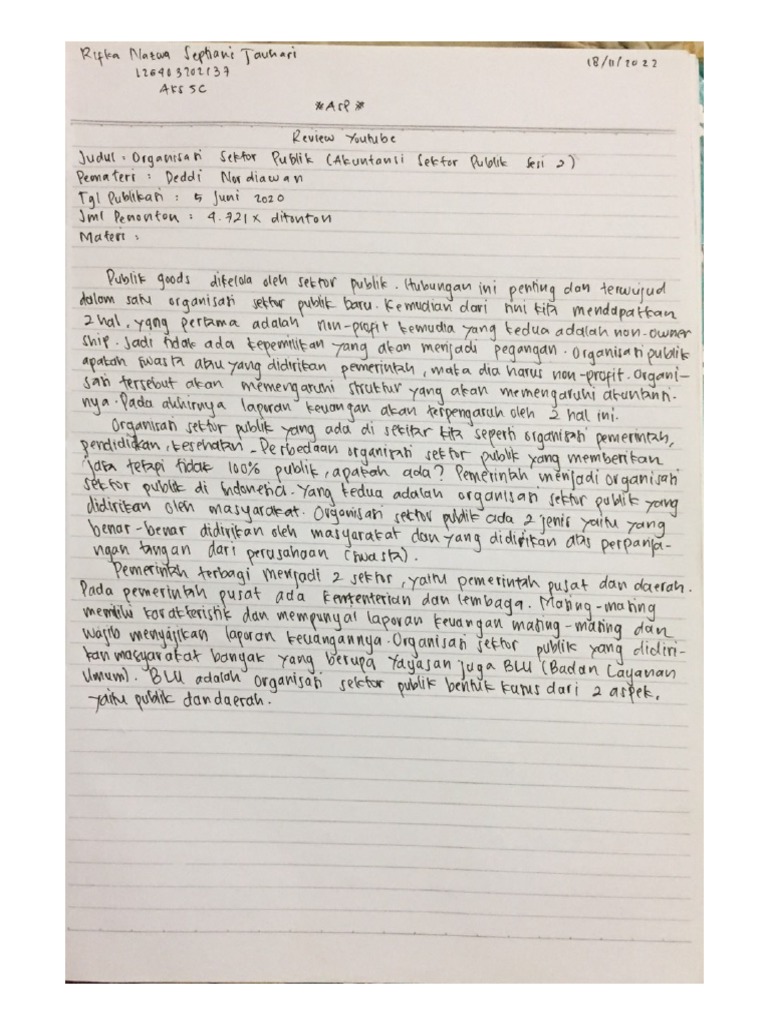 Rifka Nazwa Septiani Tauhari
18/11/2022
126403202137
AKS 5C
*ASP*
Review Youtube
Judul : Organisasi Sektor Publik (Akuntansi Sektor Publik Sesi 2)
Pemateri : Deddi Nordiawan
Tgl Publikasi : 5 Juni 2020
Jml Penonton : 4.721x ditonton
Materi :
Publik goods dikelola oleh sektor publik. Hubungan ini penting dan terwujud
dalam satu organisasi sektor publik baru. Kemudian dari sini kita mendapatkan
2 hal, yang pertama adalah non-profit kemudia yang kedua adalah non-owner
ship. Jadi tidak ada kepemilikan yang akan menjadi pegangan. Organisasi publik
apakah swasta atau yang didirikan pemerintah, maka dia harus non-profit. Organi-
sasi tersebut akan memengaruhi struktur yang akan memengaruhi akuntansi-
nya. Pada akhirnya laporan keuangan akan terpengaruh oleh 2 hal ini.
Organisasi sektor publik yang ada di sekitar kita seperti organisasi pemerintah,
pendidikan, kesehatan. Perbedaan organisasi sektor publik yang memberikan
jasa tetapi tidak 100% publik, apakah ada? Pemerintah menjadi organisasi
sektor publik di Indonesia. Yang kedua adalah organisasi sektor publik yang
didirikan oleh masyarakat. Organisasi sektor publik ada 2 jenis yaitu yang
benar-benar didirikan oleh masyarakat dan yang didirikan atas perpanja-
ngan tangan dari perusahaan (swasta).
Pemerintah terbagi menjadi 2 sektor, yaitu pemerintah pusat dan daerah.
Pada pemerintah pusat ada kementerian dan lembaga. Masing-masing
memiliki karakteristik dan mempunyai laporan keuangan masing-masing dan
wajib menyajikan laporan keuangannya. Organisasi sektor publik yang didiri-
kan masyarakat banyak yang berupa Yayasan juga BLU (Badan Layanan
Umum). BLU adalah organisasi sektor publik bentuk kusus dari 2 aspek,
yaitu publik dan daerah.